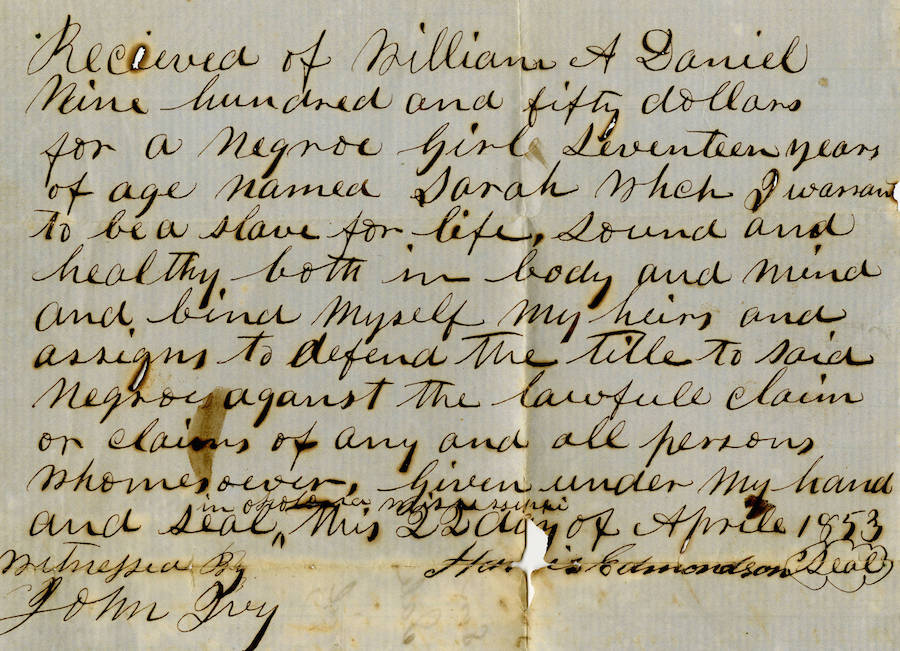 Recieved of William A Daniel
Nine hundred and fifty dollars
for a Negroe Girl Seventeen years
of age named Sarah Whch I warrant
to be a slave for life, Sound and
healthy both in body and mind
and bind Myself My heirs and
assigns to defend the title to said
Negroe against the lawfull claim
or claims of any and all persons
Whomesoever, Given under My hand
in Okolona Mississippi
and seal, ^ this 22 day of Aprile 1853
Witnessed By Edmondson Seal
John Ivy